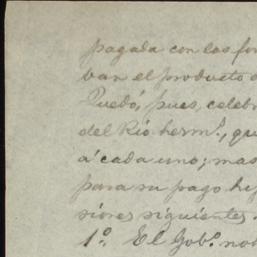 pagada con las for
ban el producto d
Quedó, pues, celebr
del Rio herm.ˢ, qu
á cada uno; mas
para su pago hip
siones siguientes.
1.º El Gob.º no